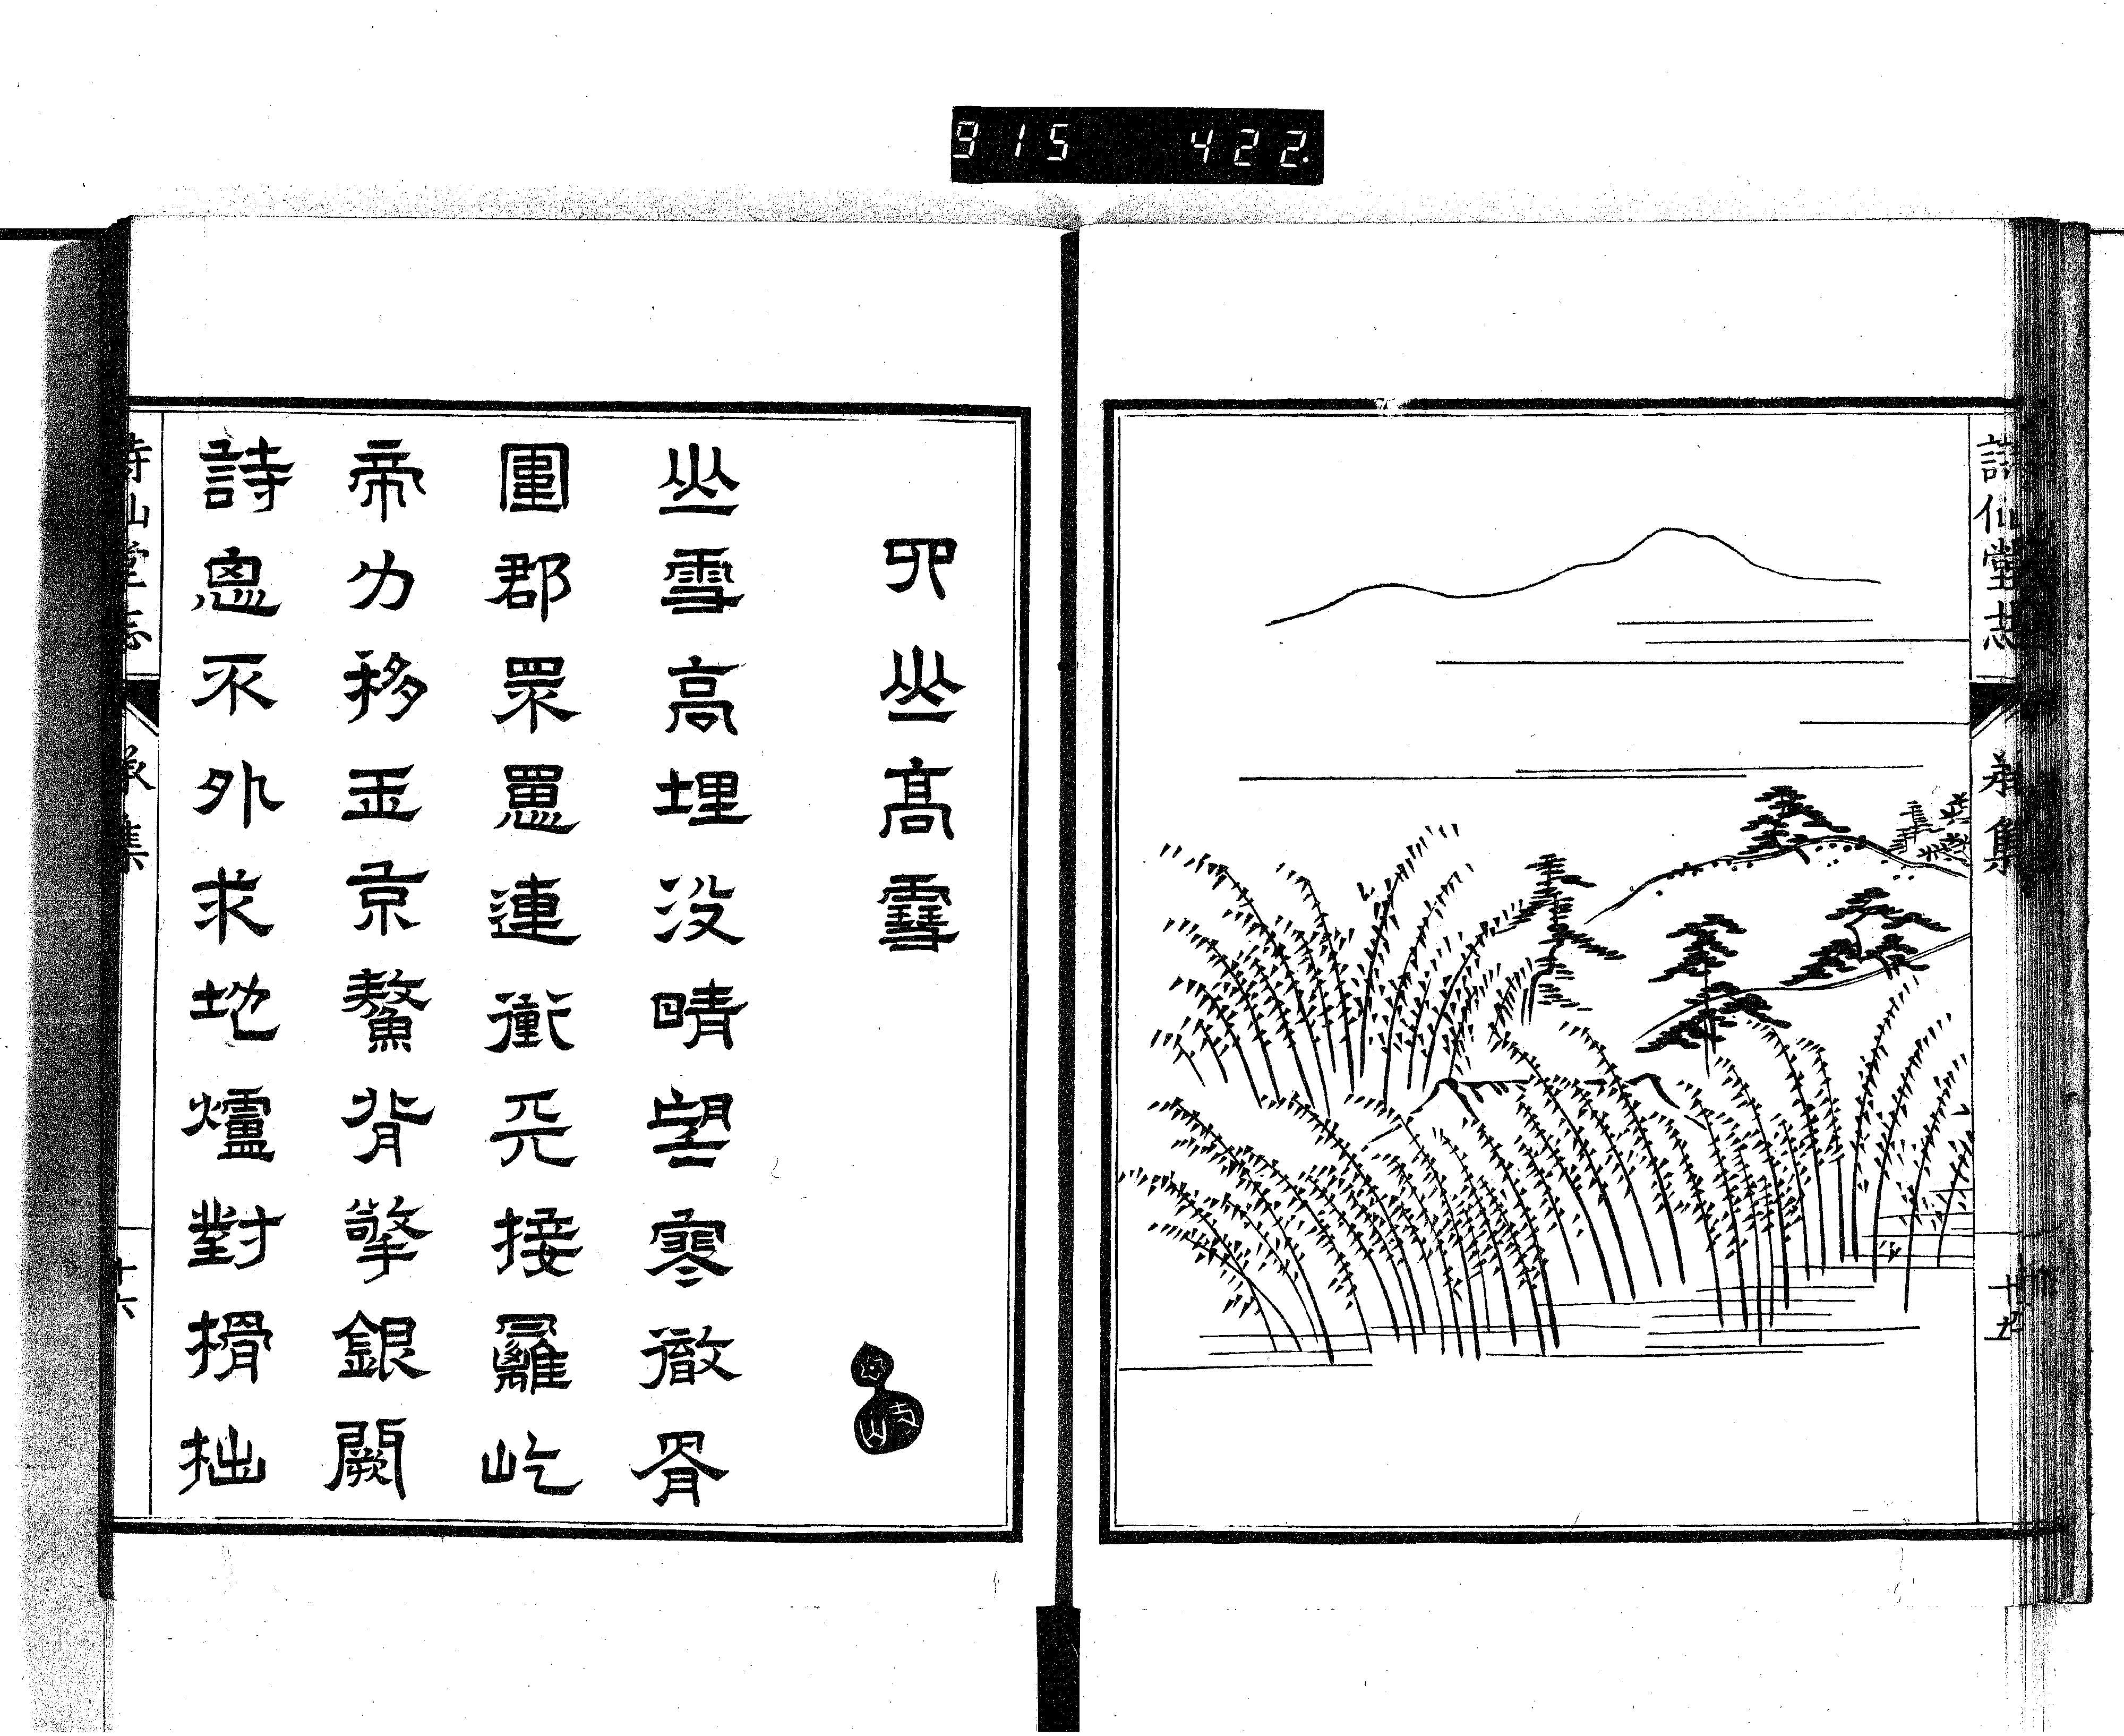 915 422.
詩仙堂志 承集 十五
四山高雪
山雪高埋没晴望寒徹骨
圍郡罘罳連衝天接羅屹
帝力移玉京鰲背擎銀闕
詩思不外求地爐對榾柮
詩仙堂志 承集 十六